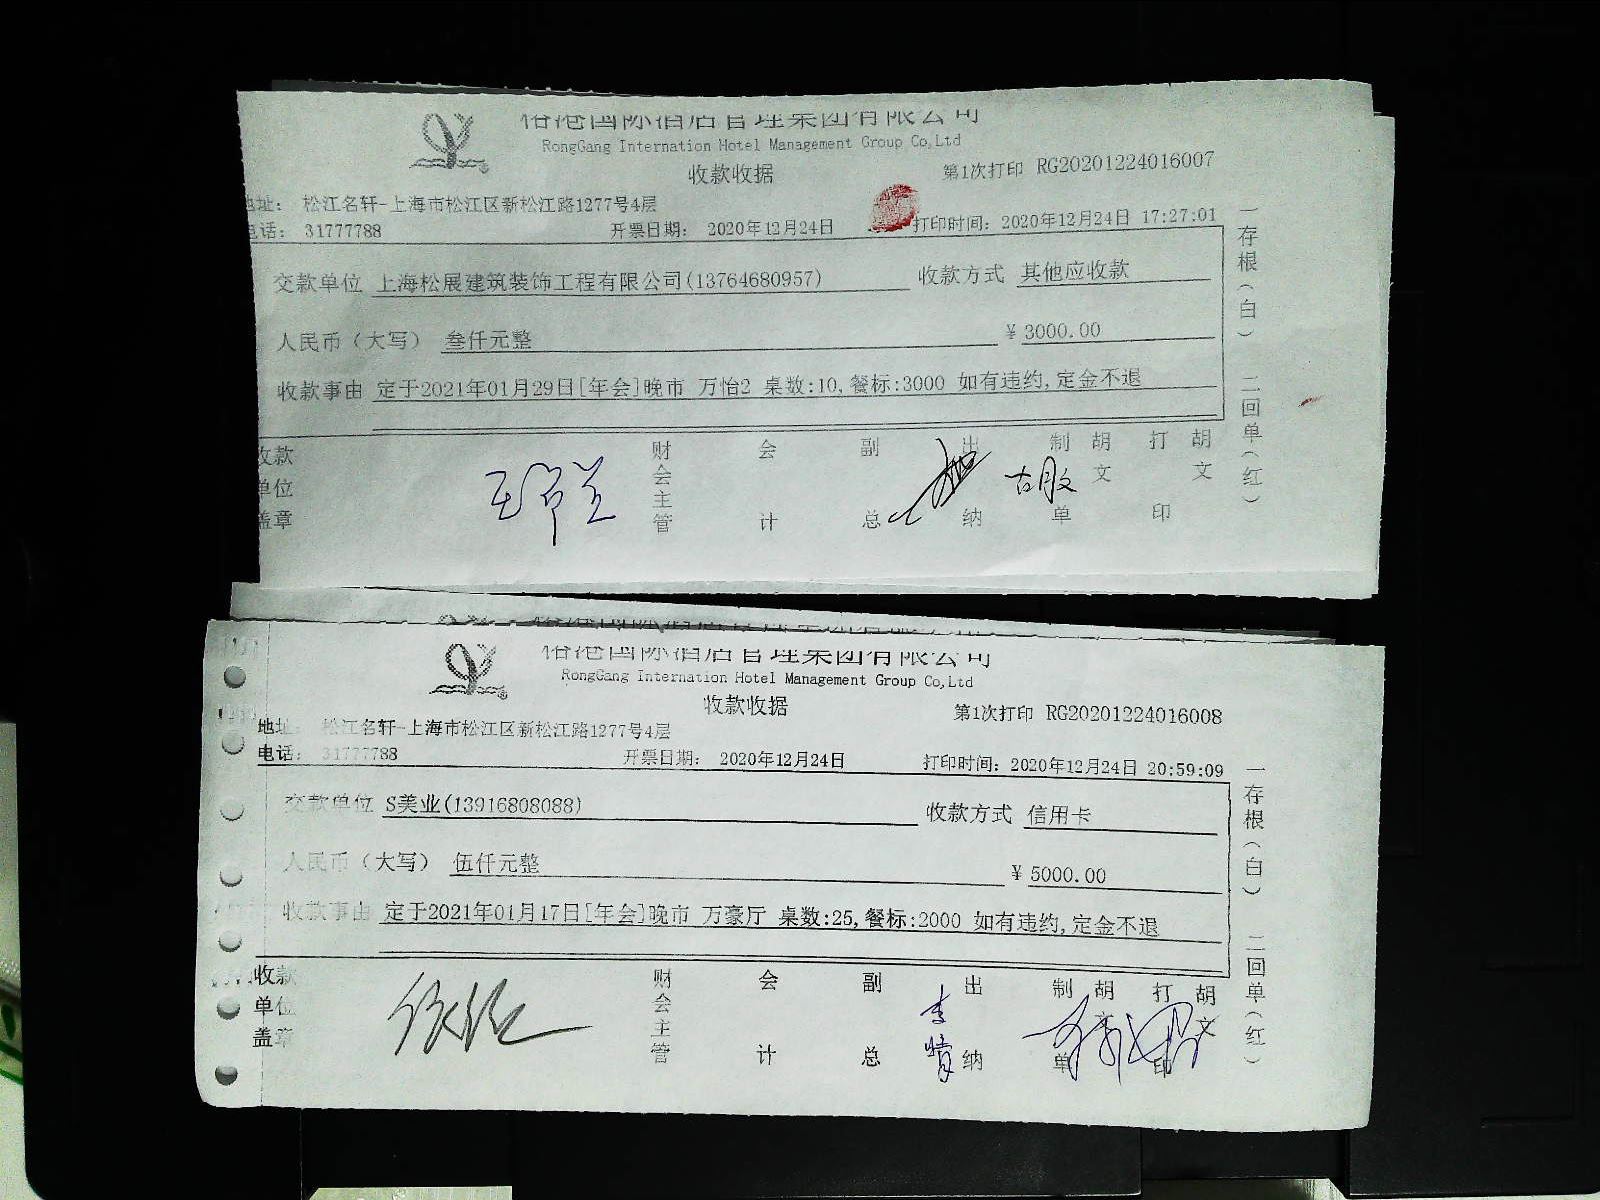 榕港国际酒店管理集团有限公司
RongGang Internation Hotel Management Group Co,Ltd
收款收据
第1次打印 RG20201224016007
地址: 松江名轩-上海市松江区新松江路1277号4层
电话: 31777788 开票日期: 2020年12月24日 打印时间: 2020年12月24日 17:27:01
交款单位 上海松展建筑装饰工程有限公司(13764680957) 收款方式 其他应收款
人民币(大写) 叁仟元整 ¥ 3000.00
收款事由 定于2021年01月29日[年会]晚市 万怡2 桌数:10,餐标:3000 如有违约,定金不退
收款单位盖章 财会主管 会计 副总 出纳 制单 胡文 打印 胡文
一存根(白) 二回单(红)
榕港国际酒店管理集团有限公司
RongGang Internation Hotel Management Group Co,Ltd
收款收据
第1次打印 RG20201224016008
地址: 松江名轩-上海市松江区新松江路1277号4层
电话: 31777788 开票日期: 2020年12月24日 打印时间: 2020年12月24日 20:59:09
交款单位 S美业(13916808088) 收款方式 信用卡
人民币(大写) 伍仟元整 ¥ 5000.00
收款事由 定于2021年01月17日[年会]晚市 万豪厅 桌数:25,餐标:2000 如有违约,定金不退
收款单位盖章 财会主管 会计 副总 李婧 出纳 制单 胡文 打印 胡文
一存根(白) 二回单(红)